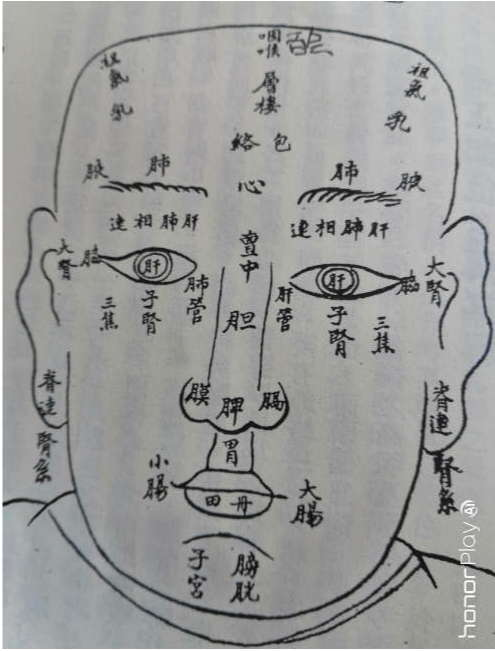 咽喉
祖氣
祖氣
乳
乳
層樓
絡包
肺
肺
腋
腋
心
連相肺肝
連相肺肝
亶中
大腎
腦
肝
肺管
肝管
肝
腦
大腎
三焦
子腎
胆
子腎
三焦
膜
脾
膈
脊連腎系
脊連腎系
胃
小腸
大腸
田丹
子宮
膀胱
honorPlay AI